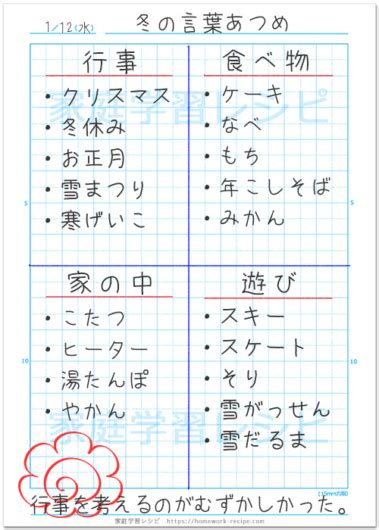 1/12(水) 冬の言葉あつめ
行事
・クリスマス
・冬休み
・お正月
・雪まつり
・寒げいこ
食べ物
・ケーキ
・なべ
・もち
・年こしそば
・みかん
家庭学習レシピ
5
5
家の中
・こたつ
・ヒーター
・湯たんぽ
・やかん
遊び
・スキー
・スケート
・そり
・雪がっせん
・雪だるま
10
10
家庭学習レシピ
行事を考えるのがむずかしかった。
家庭学習レシピ https://homework-recipe.com/